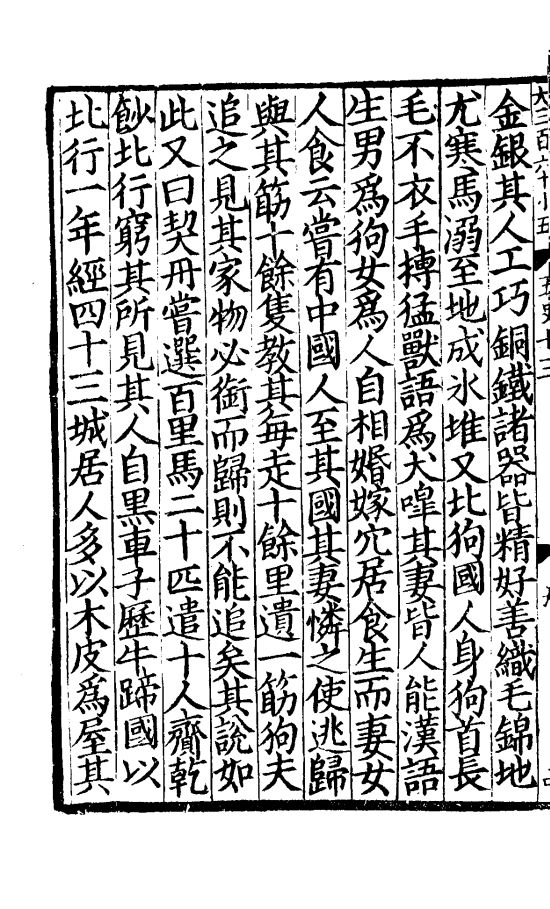 金銀其人工巧銅鐵諸器皆精好善織毛錦地
尤寒馬溺至地成氷堆又北狗國人身狗首長
毛不衣手搏猛獸語爲犬嘷其妻皆人能漢語
生男爲狗女爲人自相婚嫁穴居食生而妻女
人食云嘗有中國人至其國其妻憐之使逃歸
與其筯十餘隻教其每走十餘里遺一筯狗夫
追之見其家物必銜而歸則不能追矣其說如
此又曰契丹嘗選百里馬二十匹遣十人齎乾
𪌘北行窮其所見其人自黑車子歷牛蹄國以
北行一年經四十三城居人多以木皮爲屋其